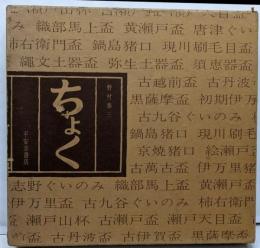 織部馬上盃 黄瀬戸盃 唐津ぐい
柿右衛門盃 鍋島猪口 現川刷毛目盃
縄文土器盃 弥生土器盃 須恵器盃
古越前盃 古丹波
黒薩摩盃 初期伊万
古九谷ぐいのみ 柿右
鍋島猪口 現川刷毛
京焼猪口 絵瀬戸
古萬古盃 伊万里盃
志野ぐいのみ 織部馬上盃 黄瀬戸盃
伊万里盃 古九谷ぐいのみ 柿右衛門
古瀬戸山杯 古瀬戸盃 瀬戸天目盃
盃 古丹波盃 古伊賀盃 黒薩摩盃
ちょく